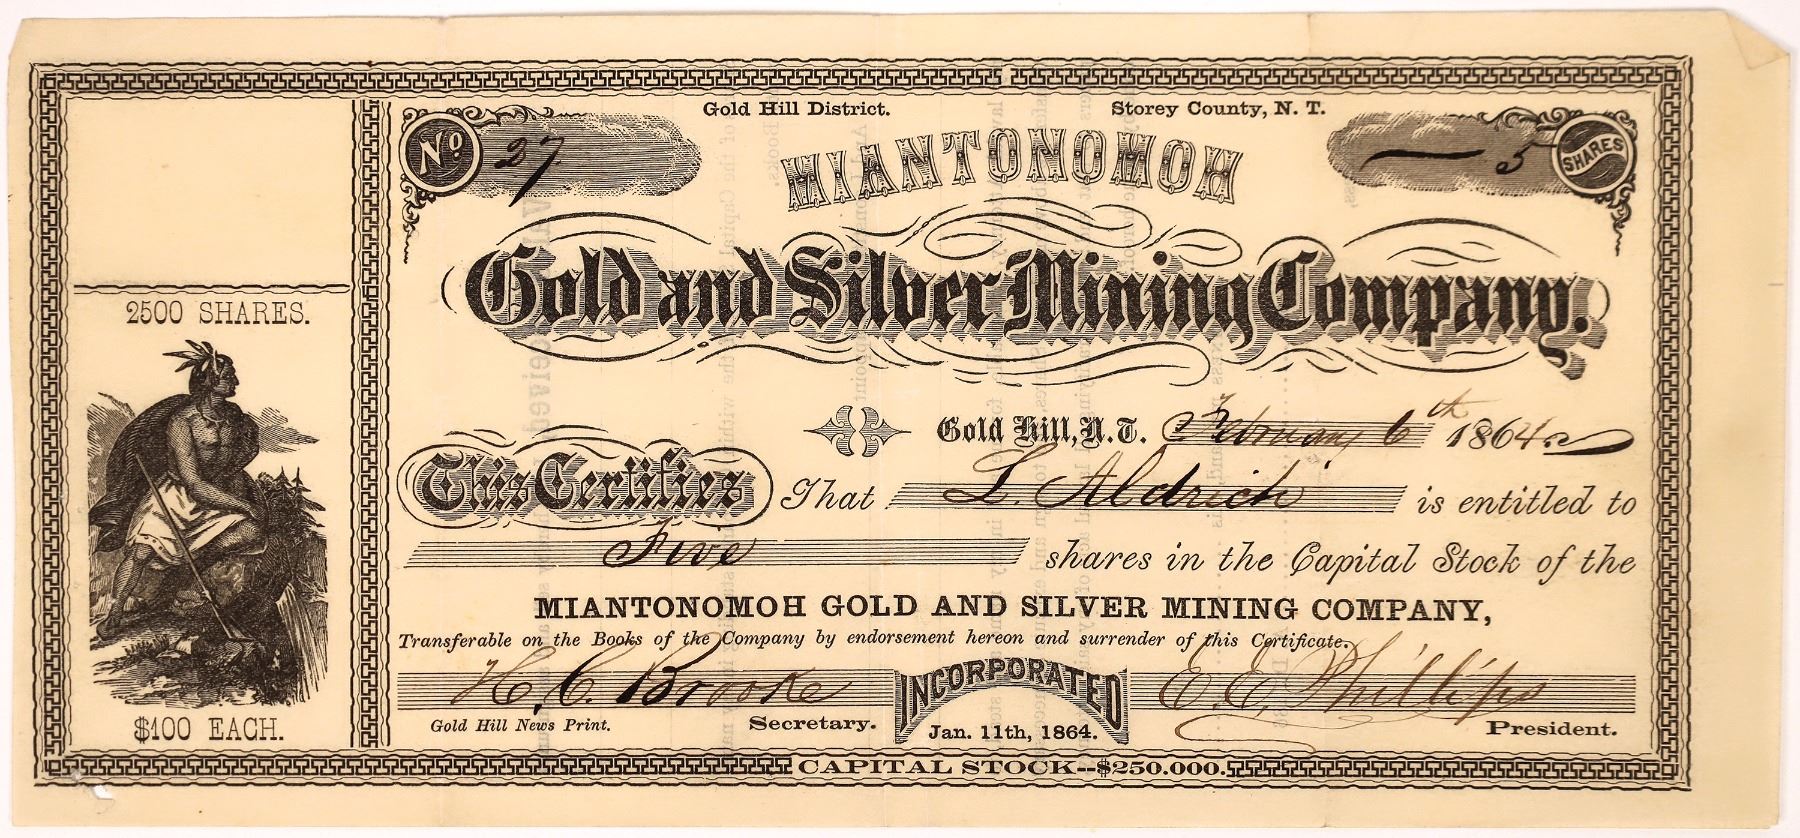 Gold Hill District. Storey County, N. T.
No. 27
5 SHARES
MIANTONOMOH
Gold and Silver Mining Company.
2500 SHARES.
$100 EACH.
Gold Hill, N. T. February 6th 1864
This Certifies That L. Aldrich is entitled to
Five shares in the Capital Stock of the
MIANTONOMOH GOLD AND SILVER MINING COMPANY,
Transferable on the Books of the Company by endorsement hereon and surrender of this Certificate.
H. C. Brooke E. E. Phillips
INCORPORATED
Jan. 11th, 1864.
Gold Hill News Print. Secretary. President.
CAPITAL STOCK--$250.000.